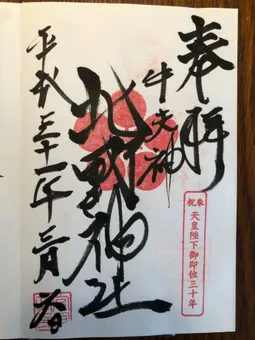 奉拝
奉祝 天皇陛下御即位三十年
牛天神
北野神社
平成三十一年三月